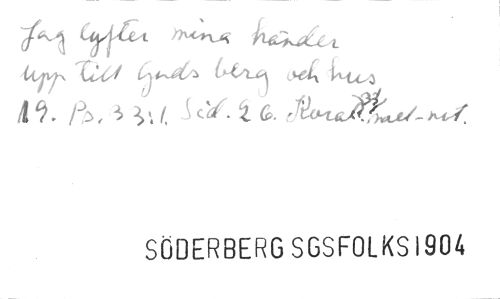 Jag lyfter mina händer
upp till Guds berg och hus
19. Ps. 33:1. Sid. 26. Koral
SÖDERBERG SGSFOLKS 1904